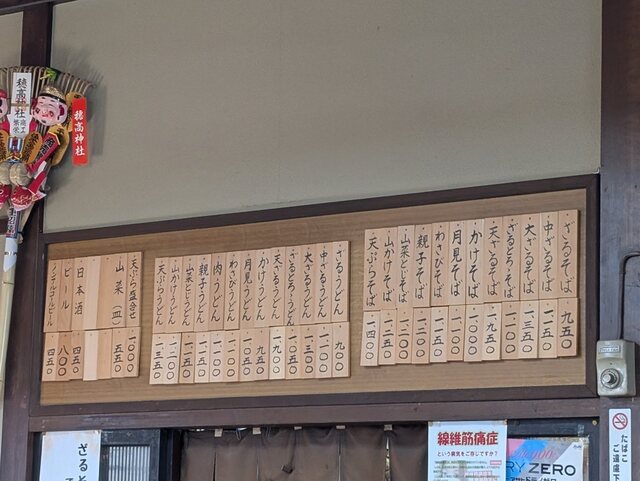 穂高神社
商工繁栄
穂高神社
ざるそば 九五〇
中ざるそば 一一五〇
大ざるそば 一三五〇
ざるとろそば 一一〇〇
天ざるそば 一九五〇
かけそば 一〇〇〇
月見そば 一一〇〇
わさびそば 一一五〇
親子そば 一二〇〇
山菜とじそば 一二〇〇
山かけそば 一二五〇
天ぷらそば 一四〇〇
ざるうどん 九〇〇
中ざるうどん 一一〇〇
大ざるうどん 一三〇〇
ざるとろうどん 一〇五〇
天ざるうどん 一九〇〇
かけうどん 九五〇
月見うどん 一〇五〇
わさびうどん 一一〇〇
肉うどん 一一〇〇
親子うどん 一一五〇
山菜とじうどん 一一五〇
山かけうどん 一二〇〇
天ぷらうどん 一三五〇
天ぷら盛合せ 一〇〇〇
山菜(一皿) 五五〇
日本酒 四五〇
ビール 八〇〇
ノンアルコールビール 四五〇
ざると
線維筋痛症
という病気をご存じですか?
RY ZERO
たばこ
ご遠慮下